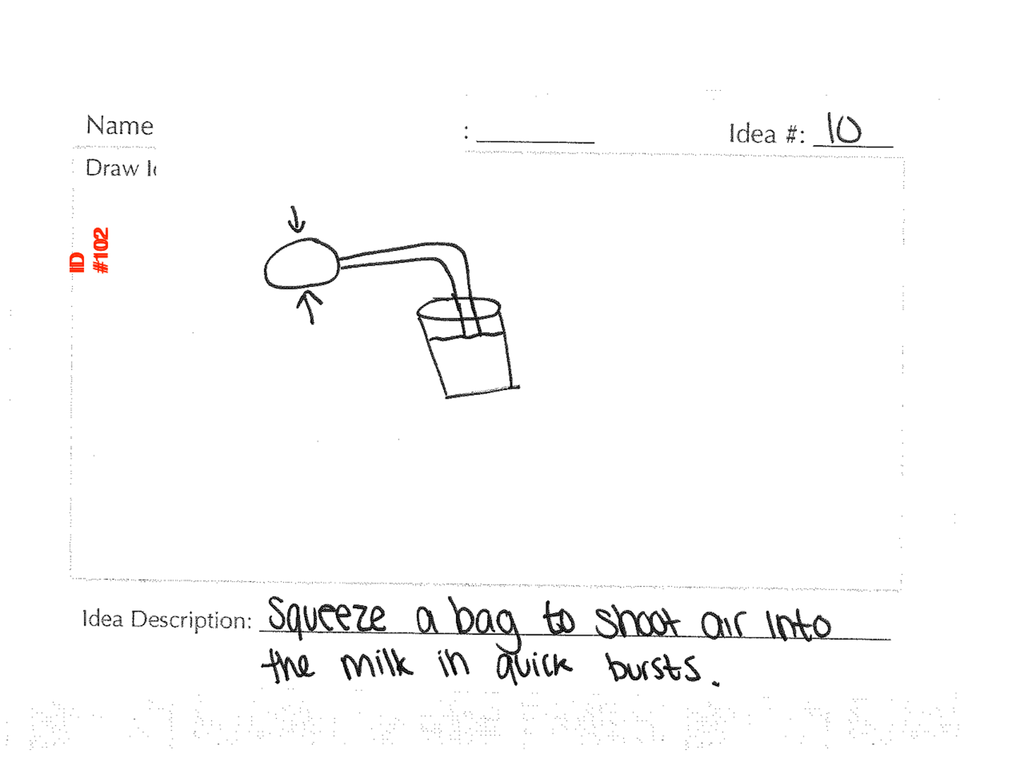 Name : Idea #: 10
Draw I
ID #102
Idea Description: Squeeze a bag to shoot air into
the milk in quick bursts.